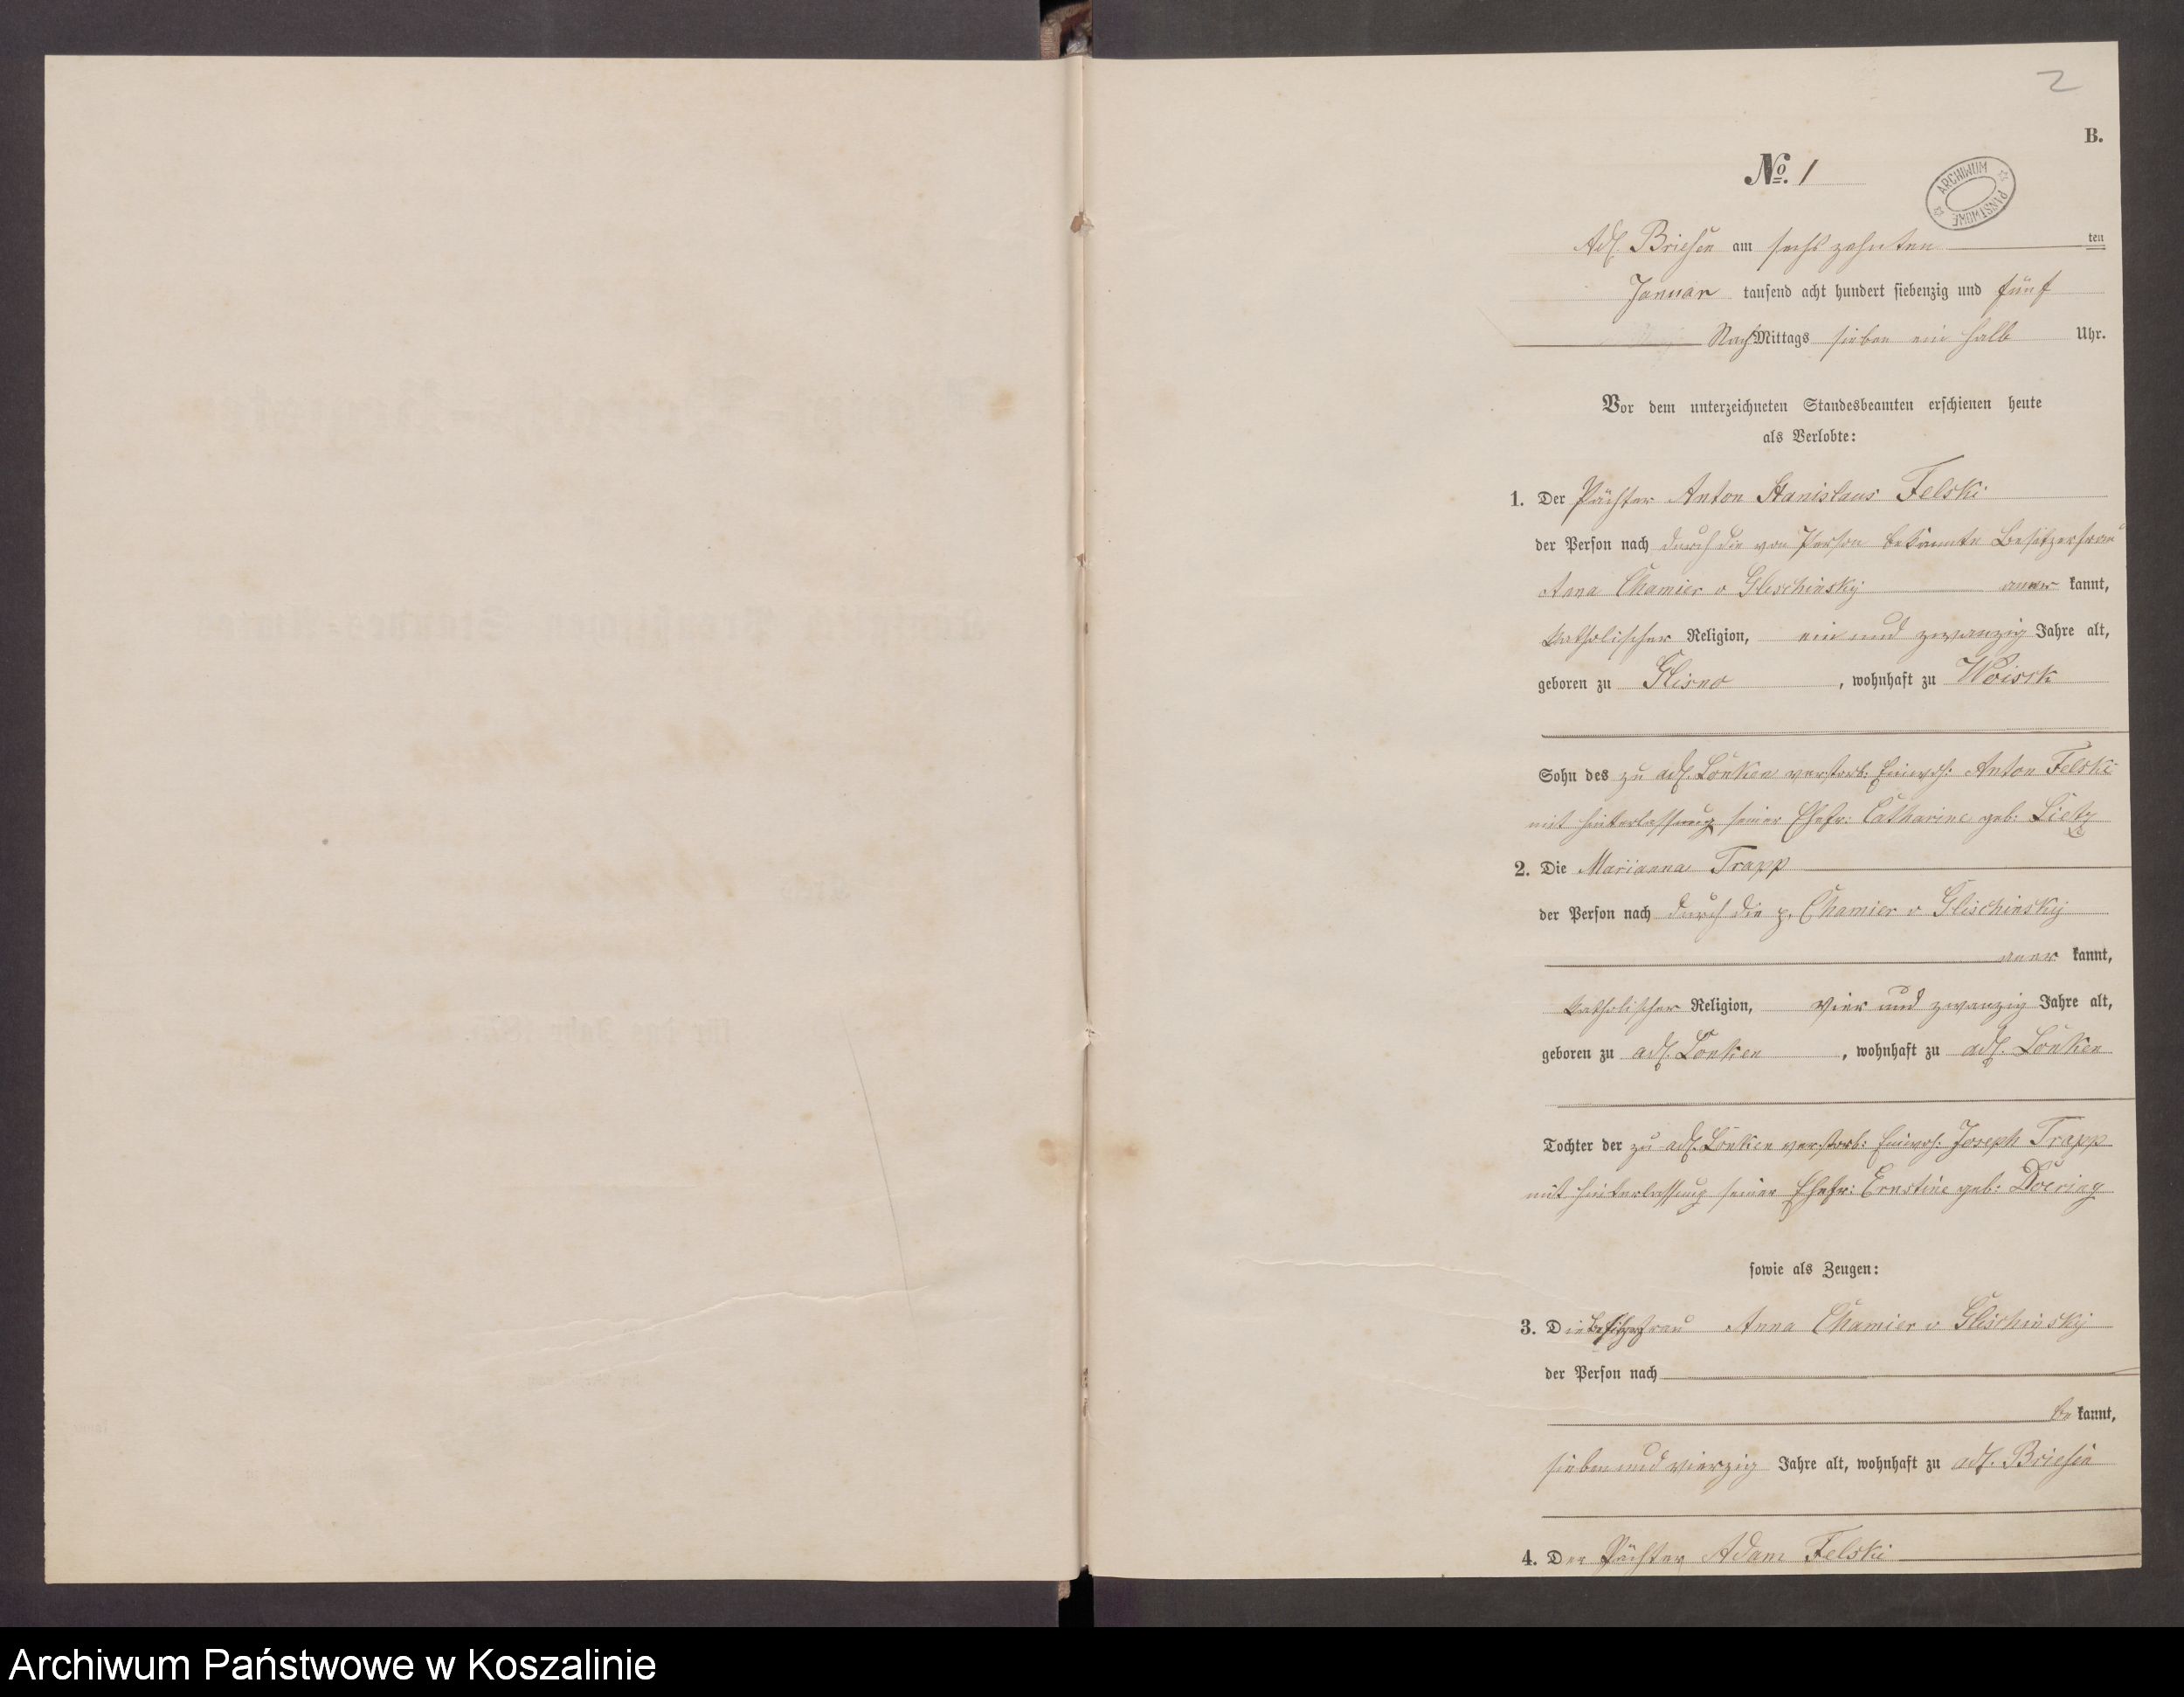 2
B.
No. 1
ARCHIWUM PAŃSTWOWE
Adl. Briesen am sechszehnten ten
Januar tausend acht hundert siebenzig und fünf
Nach Mittags sieben ein halb Uhr.
Vor dem unterzeichneten Standesbeamten erschienen heute
als Verlobte:
1. Der Pächter Anton Stanislaus Felski
der Person nach durch die von Person bekannte Besitzerfrau
Anna Chamier v Glischinsky aner kannt,
katholischer Religion, ein und zwanzig Jahre alt,
geboren zu Glisno, wohnhaft zu Woisk
Sohn des zu adl. Lonken verstorb: Einwoh: Anton Felski
mit Hinterlassung seiner Ehefr: Catharine geb: Lietz
2. Die Marianna Trapp
der Person nach durch die p. Chamier v Glischinsky
aner kannt,
katholischer Religion, vier und zwanzig Jahre alt,
geboren zu adl. Lonken, wohnhaft zu adl. Lonken
Tochter der zu adl. Lonken verstorb: Einwoh: Joseph Trapp
mit Hinterlassung seiner Ehefr: Ernstine geb: Doering
sowie als Zeugen:
3. Die Besitzerfrau Anna Chamier v Glischinsky
der Person nach
be kannt,
sieben und vierzig Jahre alt, wohnhaft zu adl. Briesen
4. Der Pächter Adam Felski
Archiwum Państwowe w Koszalinie